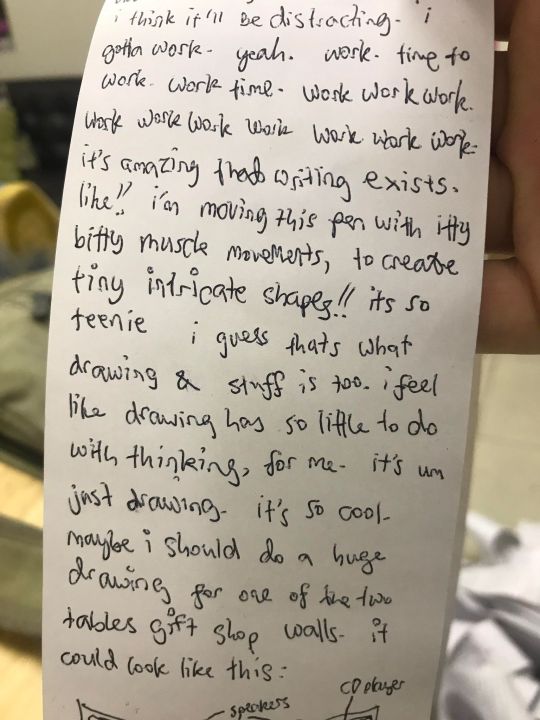 i think it'll be distracting. i
gotta work. yeah. work. time to
work. work time. work work work.
work work work work work work work.
it's amazing that writing exists.
like!! i'm moving this pen with itty
bitty muscle movements, to create
tiny intricate shapes!! its so
teenie i guess thats what
drawing & stuff is too. i feel
like drawing has so little to do
with thinking, for me. it's um
just drawing. it's so cool.
maybe i should do a huge
drawing for one of the two
tables gift shop walls. it
could look like this:
speakers CD player